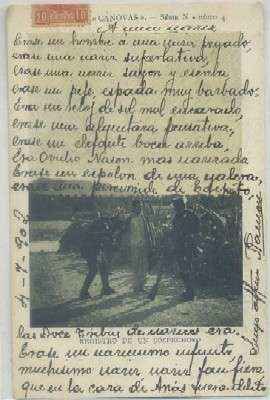 10 céntimos 10
« CÁNOVAS ». — Série N número 4
A una nariz
Erase un hombre a una nariz pegado,
erase una nariz superlativa,
erase una nariz sayon y escriba
erase un peje espada muy barbado;
Era un reloj de sol mal encarado,
erase una alquitara pensativa;
erase un elefante boca arriba,
Era Ovidio Nason mas narizado
Erase un espolon de una galera
erase una piramide de Egipto,
REGISTRO DE UN SOSPECHOSO
las doce tribus de narices era.
Erase un naricisimo infinito
muchisimo nariz nariz tan fiera
que en la cara de Anás fuera delito